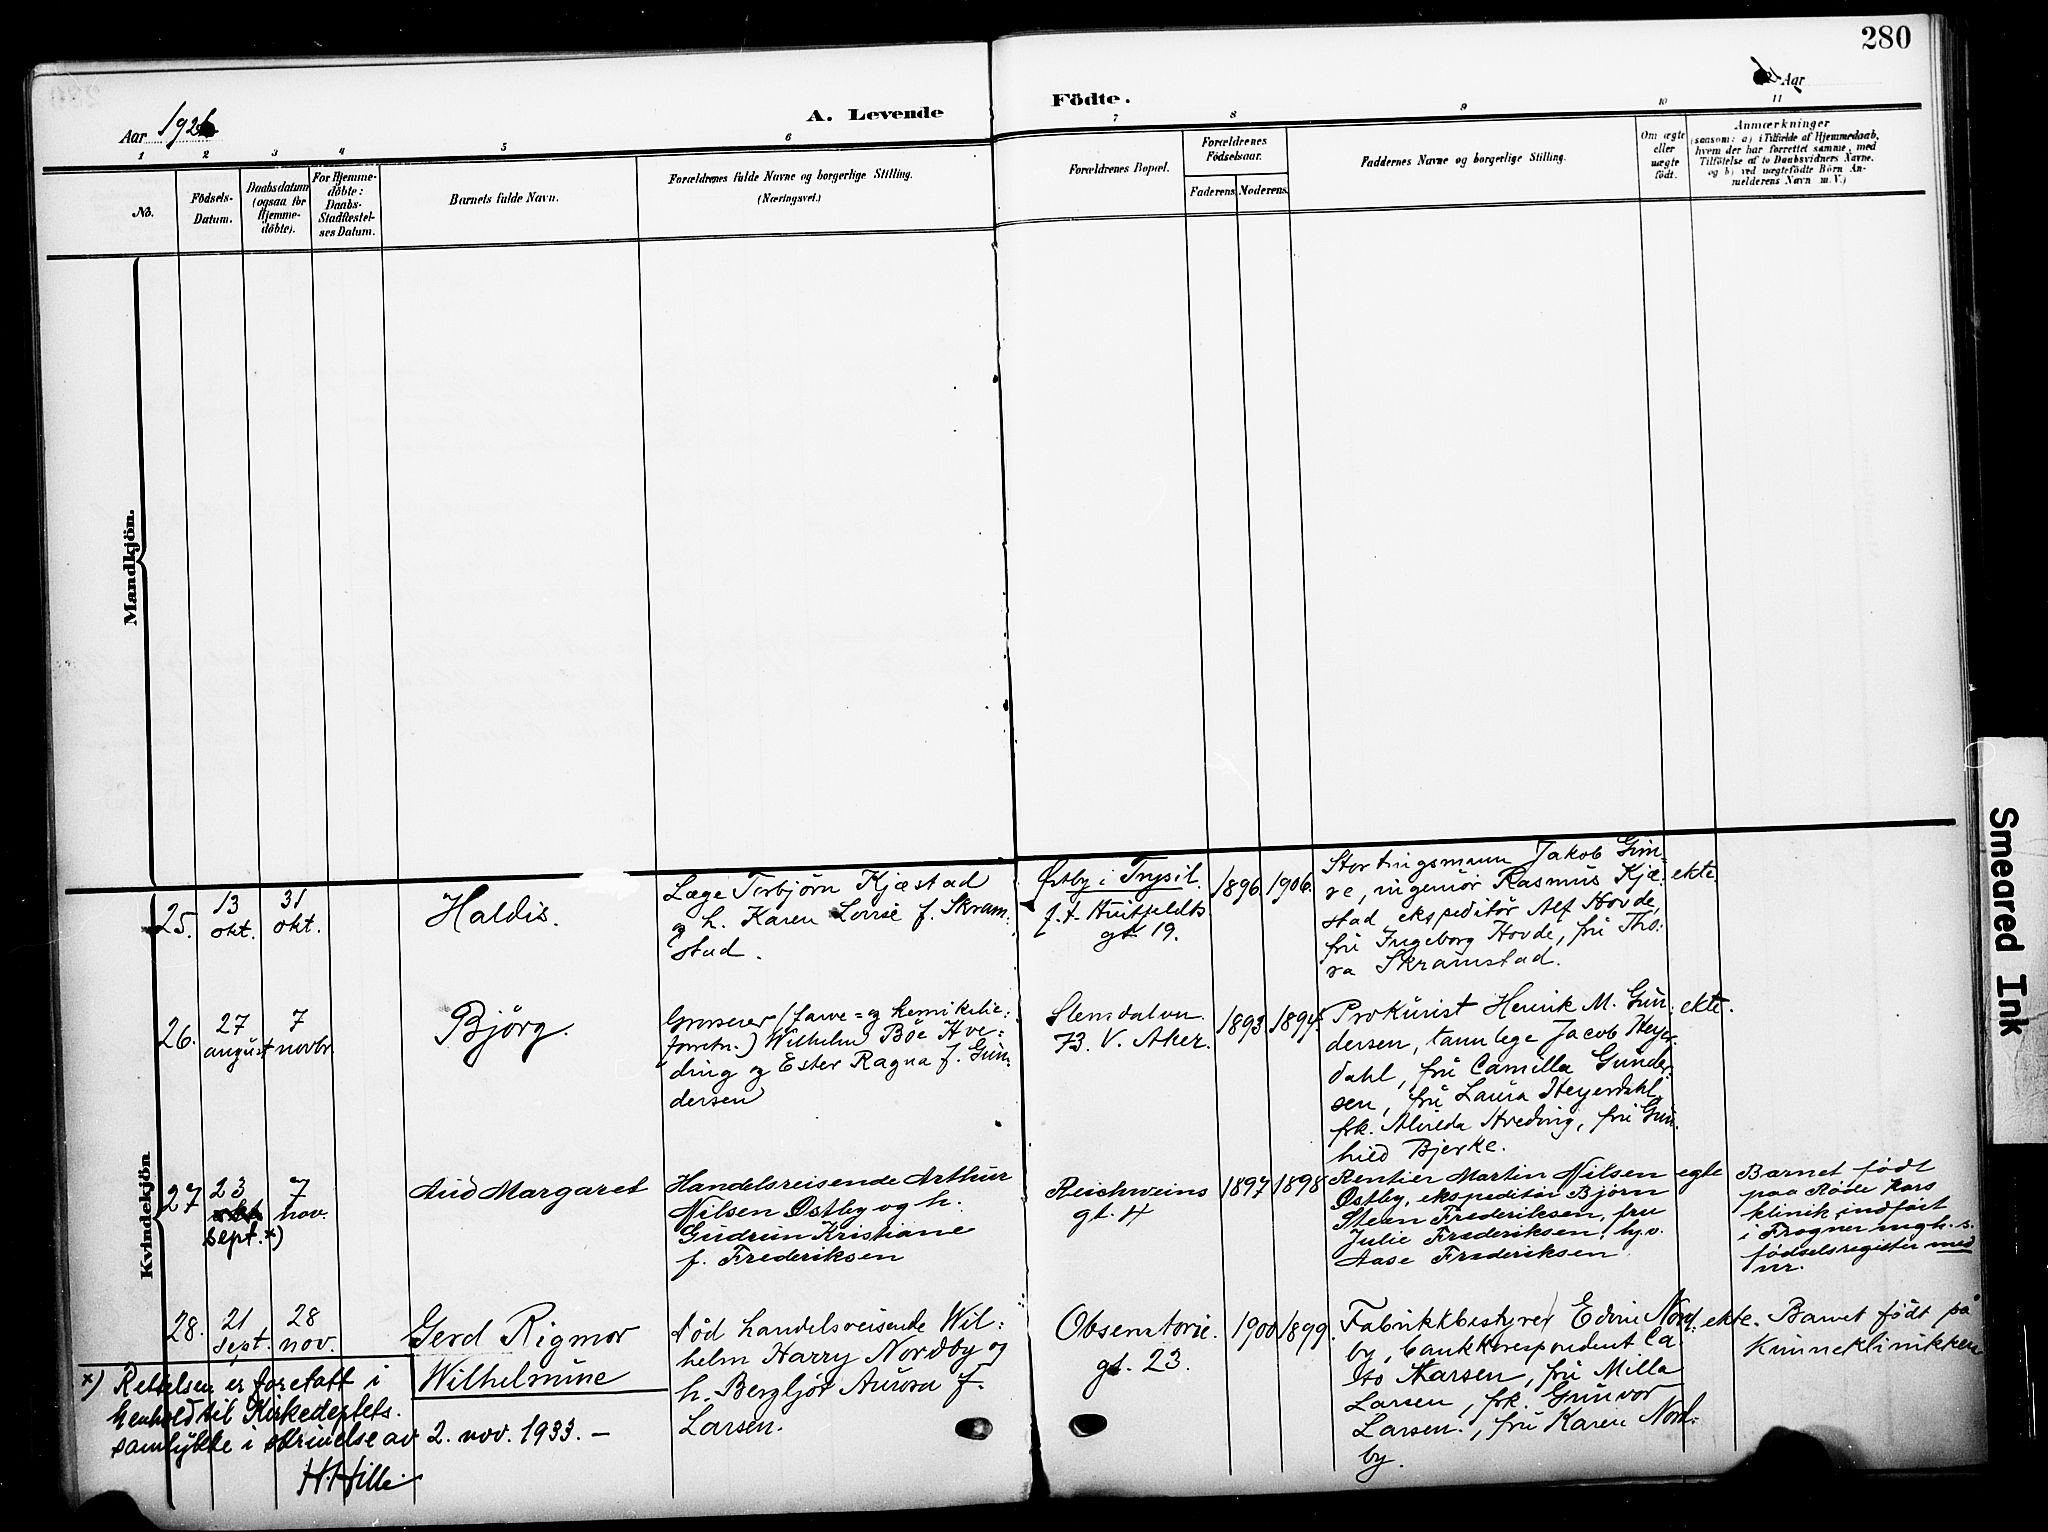 280
Aar 1926
A. Levende
Födte.
Aar
1 2 3 4 5 6 7 8 9 10 11
No.
Födsels-
Datum.
Daabsdatum
(ogsaa for
Hjemme-
döbte).
For Hjemme-
döbte:
Daabs-
Stadfæstel-
ses Datum.
Barnets fulde Navn.
Forældrenes fulde Navne og borgerlige Stilling.
(Næringsvei.)
Forældrenes Bopæl.
Forældrenes
Födselsaar.
Faderens. Moderens.
Faddernes Navne og borgerlige Stilling.
Om ægte
eller
uægte
født.
Anmærkninger
(saasom: a) i Tilfælde af Hjemmedaab,
hvem der har forrettet samme, med
Tilföielse af to Daabsvidners Navne.
og b) ved uægtefödte Börn An-
melderens Navn m. V.)
Mandkjön.
Kvindekjön
25.
13
okt.
31
okt.
Haldis.
Læge Torbjørn Kjæstad
og h. Karen Lovise f. Skram-
stad.
Østby i Trysil.
f. t. Huitfeldts
gt 19.
1896 1906.
Stortingsmann Jakob Grim=
re, ingeniør Rasmus Kjæ=
stad ekspeditør Alf Hovde,
fru Ingeborg Hovde, fru Tho:
ra Skramstad.
ekte.
26.
27
august
7
novbr.
Bjørg.
Grosserer (farve= og kemikalie:
forretn.) Wilhelm Böe Hve-
ding og Ester Ragna f. Gun-
dersen
Slemdalvn
73. V. Aker.
1893. 1894.
Prokurist Henrik M. Gun:
dersen, tannlege Jacob Heyer-
dahl, fru Camilla Gunder-
sen, fru Laura Heyerdahl,
frk. Alvilda Hveding, fru Gun-
hild Bjerke.
ekte.
27
23
sept. x)
7
nov.
Aud Margaret
Handelsreisende Arthur
Nilsen Østby og h.
Gudrun Kristiane
f. Frederiksen
Reichweins
gt. 4
1897 1898
Rentier Martin Nilsen
Østby, ekspeditør Bjørn
Steen Frederiksen, fru
Julie Frederiksen, hv.
Aase Frederiksen
egte
Barnet født
paa Røde Kors
klinik, indført
i Frogner mgh.s.
fødselsregister med
nr.
28.
21
sept.
28
nov.
Gerd Rigmor
Wilhelmine
død handelsreisende Wil:
helm Harry Nordby og
h. Bergljot Aurora f.
Larsen.
Observatorie.
gt. 23.
1900 1899.
Fabrikkbestyrer Edvin Nord:
by, bankkorrespondent Ca
sto Karsen, fru Milla
Larsen, frk. Gunvor
Larsen, fru Karen Nord:
by.
ekte.
Barnet født på
Kvinneklinikken
x) Rettelsen er foretatt i
henhold til Kirkedeptets.
samtykke i skrivelse av 2. nov. 1933. –
H. Hille.
Smeared Ink